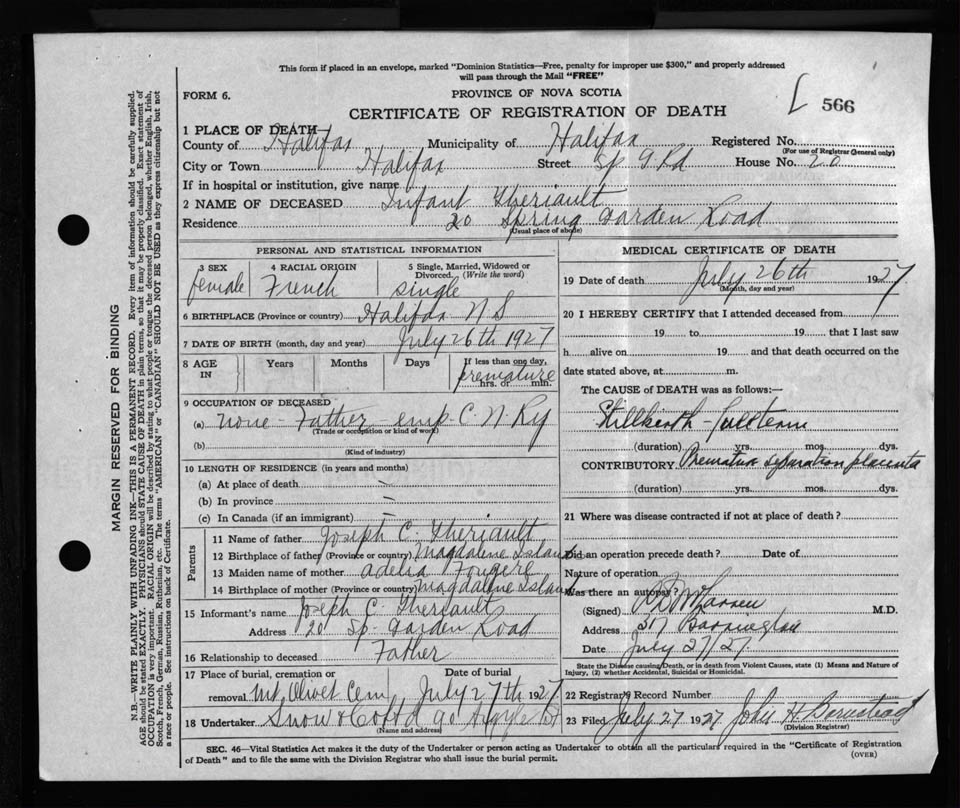 This form if placed in an envelope, marked "Dominion Statistics—Free, penalty for improper use $300," and properly addressed
will pass through the Mail "FREE"
FORM 6.
PROVINCE OF NOVA SCOTIA
566
CERTIFICATE OF REGISTRATION OF DEATH
1 PLACE OF DEATH—
County of Halifax Municipality of Halifax Registered No.
(For use of Registrar General only)
City or Town Halifax Street Sp G Rd House No. 20
If in hospital or institution, give name
2 NAME OF DECEASED Infant Theriault
Residence 20 Spring Garden Road
(Usual place of abode)
PERSONAL AND STATISTICAL INFORMATION
3 SEX 4 RACIAL ORIGIN 5 Single, Married, Widowed or
Divorced. (Write the word)
female French single
6 BIRTHPLACE (Province or country) Halifax N S
7 DATE OF BIRTH (month, day and year) July 26th 1927
8 AGE IN Years Months Days If less than one day,
premature
hrs. or min.
9 OCCUPATION OF DECEASED
(a) none - Father emp. C. N. Ry
(Trade or occupation or kind of work)
(b)
(Kind of industry)
10 LENGTH OF RESIDENCE (in years and months)
(a) At place of death —
(b) In province —
(c) In Canada (if an immigrant) —
Parents
11 Name of father Joseph C. Theriault
12 Birthplace of father (Province or country) Magdalene Island
13 Maiden name of mother Adelia Fougere
14 Birthplace of mother (Province or country) Magdalene Island
15 Informant's name Joseph C. Theriault
Address 20 Sp- Garden Road
16 Relationship to deceased Father
17 Place of burial, cremation or Date of burial
removal Mt. Olivet Cem July 27th 1927
18 Undertaker Snow & Co Ltd 90 Argyle St
(Name and address)
MEDICAL CERTIFICATE OF DEATH
19 Date of death July 26th 1927
(Month, day and year)
20 I HEREBY CERTIFY that I attended deceased from
19 to 19 that I last saw
h alive on 19 and that death occurred on the
date stated above, at m.
The CAUSE OF DEATH was as follows:—
Stillbirth - fullterm
(duration) yrs. mos. dys.
CONTRIBUTORY Premature separation placenta
(duration) yrs. mos. dys.
21 Where was disease contracted if not at place of death?
Did an operation precede death? Date of
Nature of operation
Was there an autopsy?
(Signed) M.D.
Address 317 Barrington
Date July 27/27.
State the Disease causing Death, or in death from Violent Causes, state (1) Means and Nature of
Injury, (2) whether Accidental, Suicidal or Homicidal.
22 Registrar's Record Number
23 Filed July 27 1927 John H Barnstead
(Division Registrar)
SEC. 46—Vital Statistics Act makes it the duty of the Undertaker or person acting as Undertaker to obtain all the particulars required in the "Certificate of Registration
of Death" and to file the same with the Division Registrar who shall issue the burial permit.
(OVER)
MARGIN RESERVED FOR BINDING
N.B.—WRITE PLAINLY WITH UNFADING INK—THIS IS A PERMANENT RECORD. Every item of information should be carefully supplied.
AGE should be stated EXACTLY. PHYSICIANS should STATE CAUSE OF DEATH in plain terms, so that it may be properly classified. Exact statement of
OCCUPATION is very important. RACIAL ORIGIN will be described by stating to what people or tongue the deceased person belonged, whether English, Irish,
Scotch, French, German, Russian, Ruthenian, etc. The terms "AMERICAN" or "CANADIAN" SHOULD NOT BE USED as they express citizenship but not
a race or people. See instructions on back of Certificate.